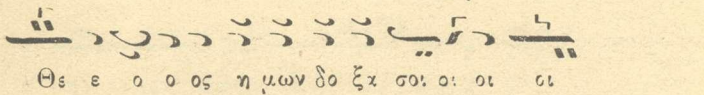 Θε ε ο ο ος η μων δο ξα σοι οι οι οι